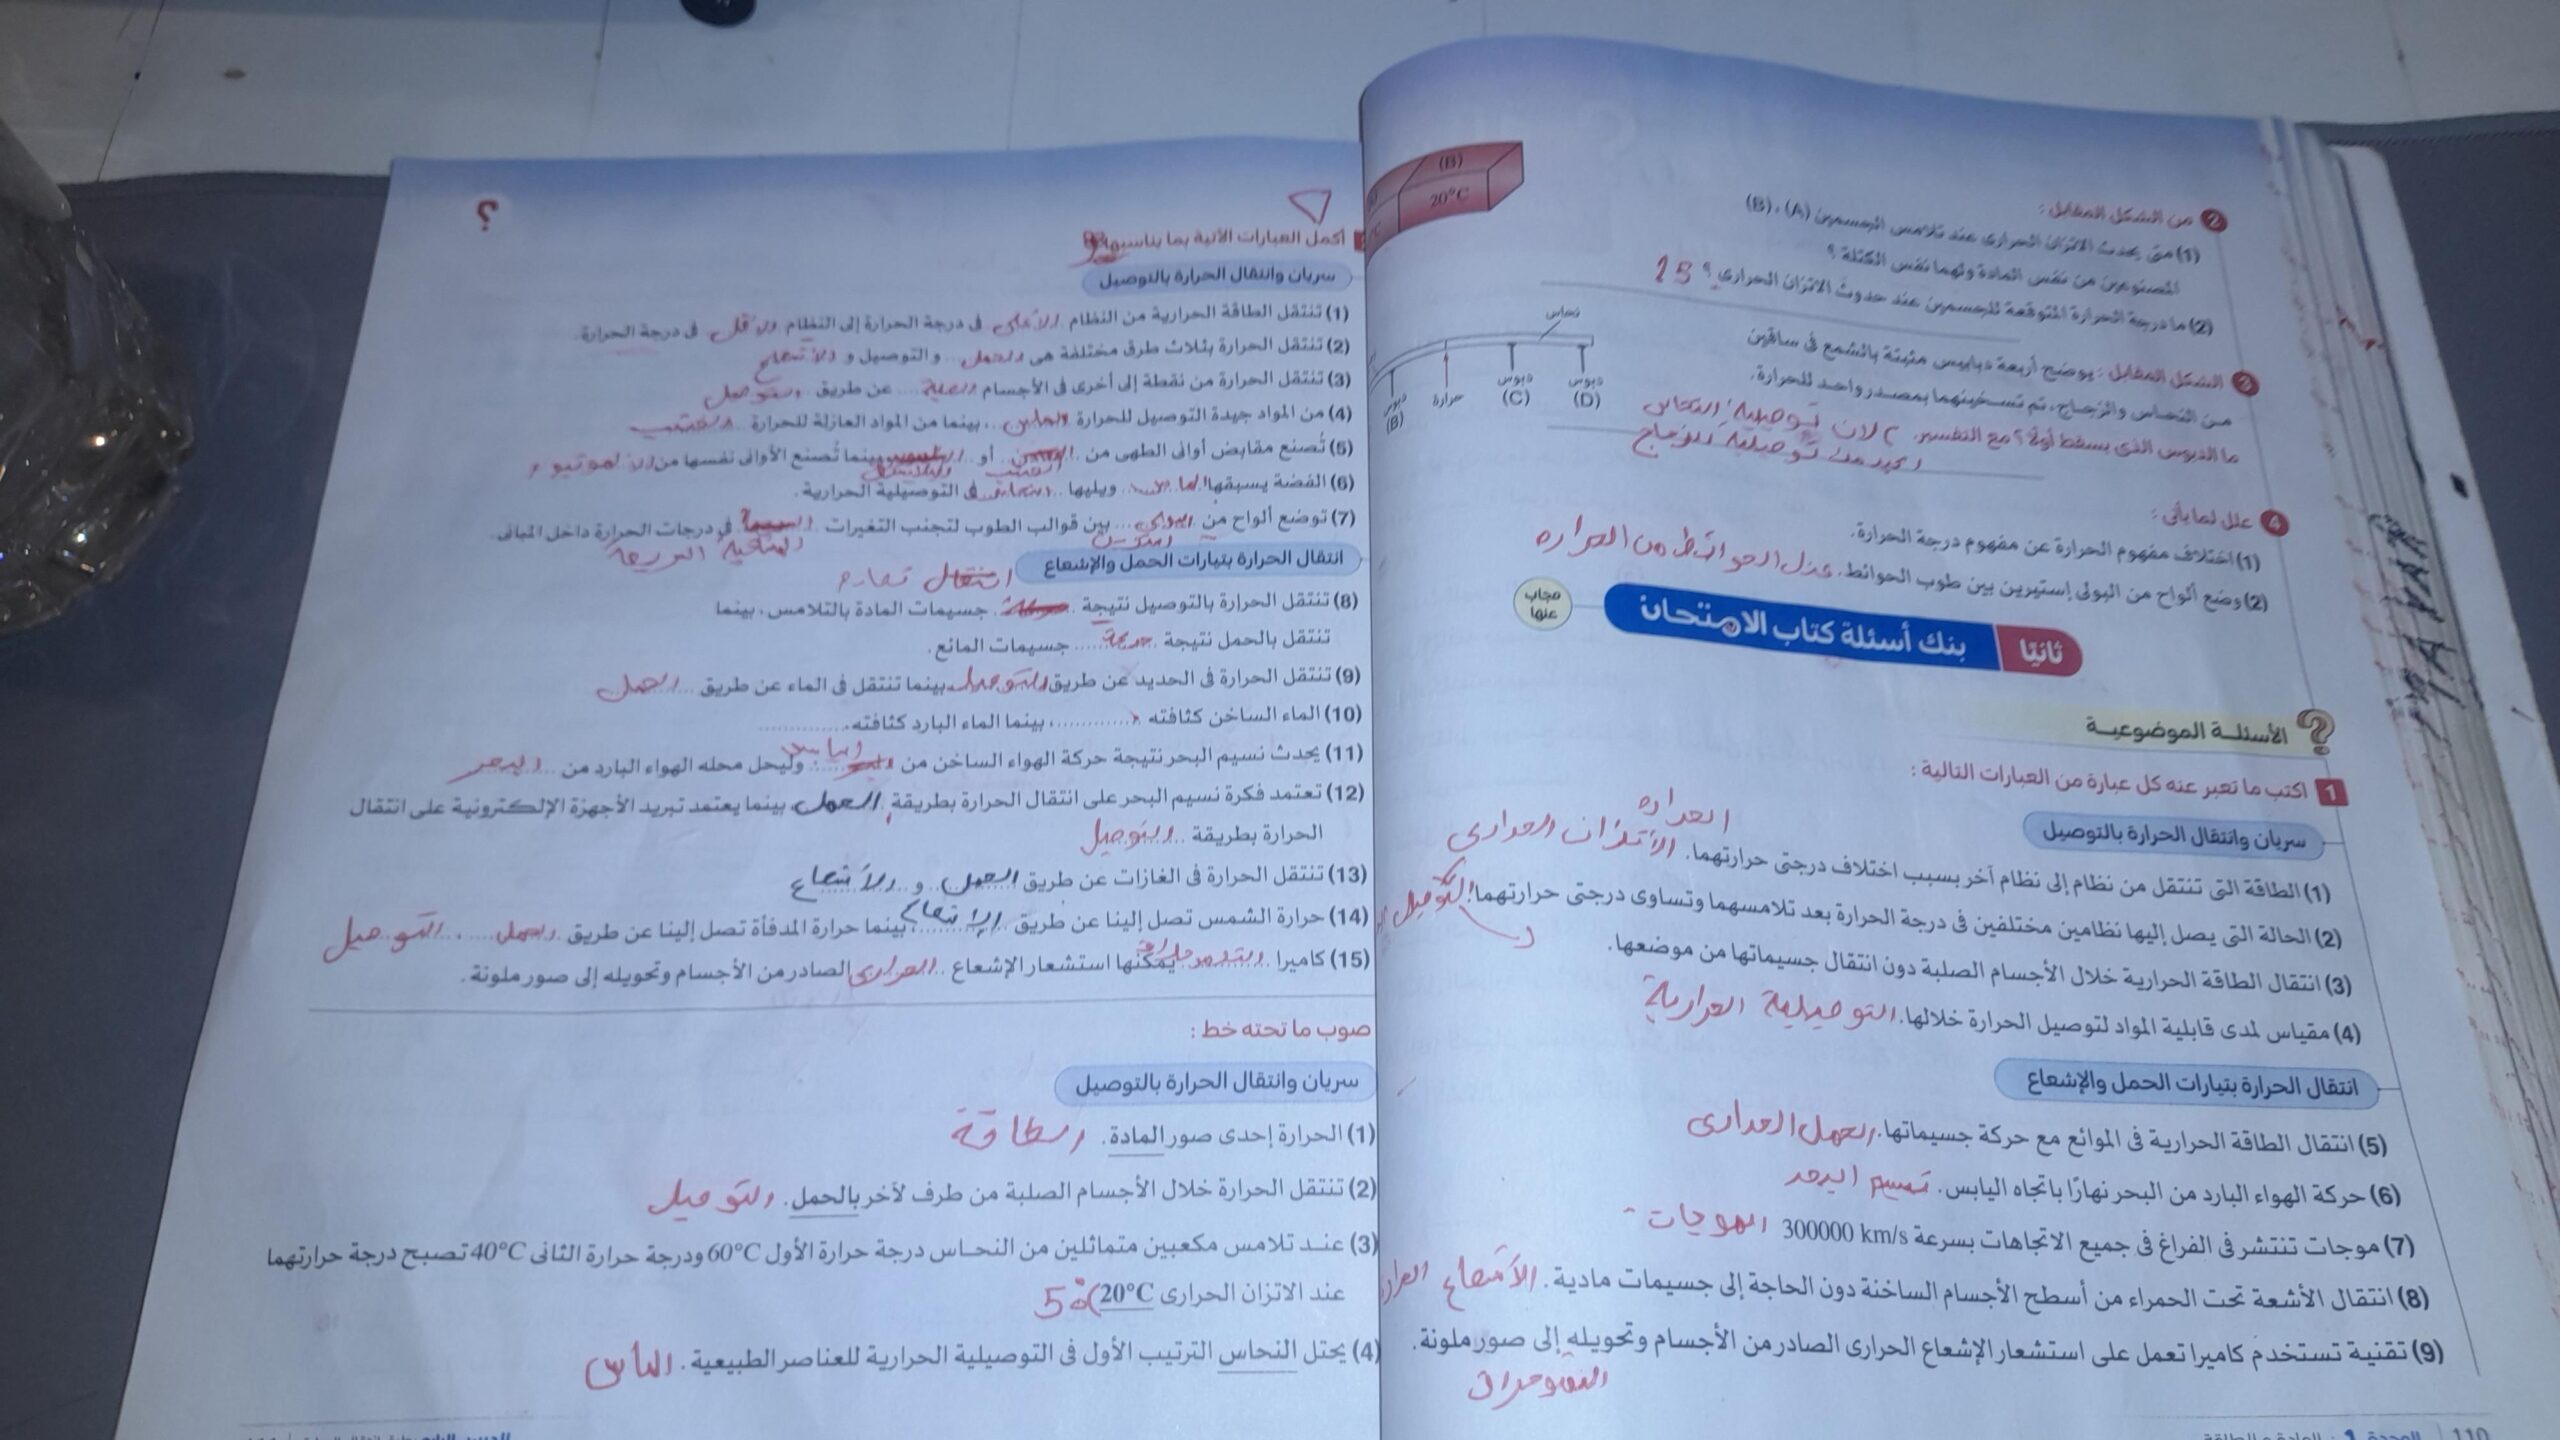 2 من الشكل المقابل :
(1) متى يحدث الاتزان الحرارى عند تلامس الجسمين (A) ، (B)
المصنوعين من نفس المادة ولهما نفس الكتلة ؟
(2) ما درجة الحرارة المتوقعة للجسمين عند حدوث الاتزان الحرارى ؟ 15
(B)
20°C
3 الشكل المقابل : يوضح أربعة دبابيس مثبتة بالشمع فى ساقين
من النحاس والزجاج، تم تسخينهما بمصدر واحد للحرارة.
ما الدبوس الذى يسقط أولًا ؟ مع التفسير. لان توصيلية النحاس
توصيلية الزجاج
نحاس
دبوس (B)
حرارة
دبوس (C)
دبوس (D)
4 علل لما يأتى :
(1) اختلاف مفهوم الحرارة عن مفهوم درجة الحرارة.
(2) وضع ألواح من البولى إستيرين بين طوب الحوائط. عزل الحوائط من الحراره
ثانيًا بنك أسئلة كتاب الامتحان
مجاب عنها
الأسئلة الموضوعية
1 اكتب ما تعبر عنه كل عبارة من العبارات التالية :
سريان وانتقال الحرارة بالتوصيل
(1) الطاقة التى تنتقل من نظام إلى نظام آخر بسبب اختلاف درجتى حرارتهما. الحراره
الأتزان الحرارى
(2) الحالة التى يصل إليها نظامين مختلفين فى درجة الحرارة بعد تلامسهما وتساوى درجتى حرارتهما. التوصيل
(3) انتقال الطاقة الحرارية خلال الأجسام الصلبة دون انتقال جسيماتها من موضعها.
(4) مقياس لمدى قابلية المواد لتوصيل الحرارة خلالها. التوصيلية الحرارية
انتقال الحرارة بتيارات الحمل والإشعاع
(5) انتقال الطاقة الحرارية فى الموائع مع حركة جسيماتها. الحمل الحرارى
(6) حركة الهواء البارد من البحر نهارًا باتجاه اليابس. نسيم البحر
(7) موجات تنتشر فى الفراغ فى جميع الاتجاهات بسرعة 300000 km/s الموجات
(8) انتقال الأشعة تحت الحمراء من أسطح الأجسام الساخنة دون الحاجة إلى جسيمات مادية. الأشعاع
(9) تقنية تستخدم كاميرا تعمل على استشعار الإشعاع الحرارى الصادر من الأجسام وتحويله إلى صور ملونة.
110
؟
أكمل العبارات الآتية بما يناسبها :
سريان وانتقال الحرارة بالتوصيل
(1) تنتقل الطاقة الحرارية من النظام الأعلى فى درجة الحرارة إلى النظام الأقل فى درجة الحرارة.
(2) تنتقل الحرارة بثلاث طرق مختلفة هى الحمل و التوصيل و الأشعاع
(3) تنتقل الحرارة من نقطة إلى أخرى فى الأجسام الصلبة عن طريق التوصيل
(4) من المواد جيدة التوصيل للحرارة الماس ، بينما من المواد العازلة للحرارة الخشب
(5) تُصنع مقابض أوانى الطهى من الخشب أو البلاستك بينما تُصنع الأوانى نفسها من الالومونيوم
(6) الفضة يسبقها الماس ويليها النحاس فى التوصيلية الحرارية.
(7) توضع ألواح من البولى استرين بين قوالب الطوب لتجنب التغيرات المناخية السريعة فى درجات الحرارة داخل المبانى.
انتقال الحرارة بتيارات الحمل والإشعاع
(8) تنتقل الحرارة بالتوصيل نتيجة تصادم جسيمات المادة بالتلامس، بينما
تنتقل بالحمل نتيجة حركة جسيمات المائع.
(9) تنتقل الحرارة فى الحديد عن طريق التوصيل بينما تنتقل فى الماء عن طريق الحمل
(10) الماء الساخن كثافته ............، بينما الماء البارد كثافته ............
(11) يحدث نسيم البحر نتيجة حركة الهواء الساخن من اليابس وليحل محله الهواء البارد من البحر
(12) تعتمد فكرة نسيم البحر على انتقال الحرارة بطريقة الحمل، بينما يعتمد تبريد الأجهزة الإلكترونية على انتقال
الحرارة بطريقة التوصيل
(13) تنتقل الحرارة فى الغازات عن طريق الحمل و الأشعاع
(14) حرارة الشمس تصل إلينا عن طريق الإشعاع، بينما حرارة المدفأة تصل إلينا عن طريق الحمل ، التوصيل
(15) كاميرا يمكنها استشعار الإشعاع الحرارى الصادر من الأجسام وتحويله إلى صور ملونة.
صوب ما تحته خط :
سريان وانتقال الحرارة بالتوصيل
(1) الحرارة إحدى صور المادة. الطاقة
(2) تنتقل الحرارة خلال الأجسام الصلبة من طرف لآخر بالحمل. التوصيل
(3) عند تلامس مكعبين متماثلين من النحاس درجة حرارة الأول 60°C ودرجة حرارة الثانى 40°C تصبح درجة حرارتهما
عند الاتزان الحرارى 20°C 50
(4) يحتل النحاس الترتيب الأول فى التوصيلية الحرارية للعناصر الطبيعية. الماس